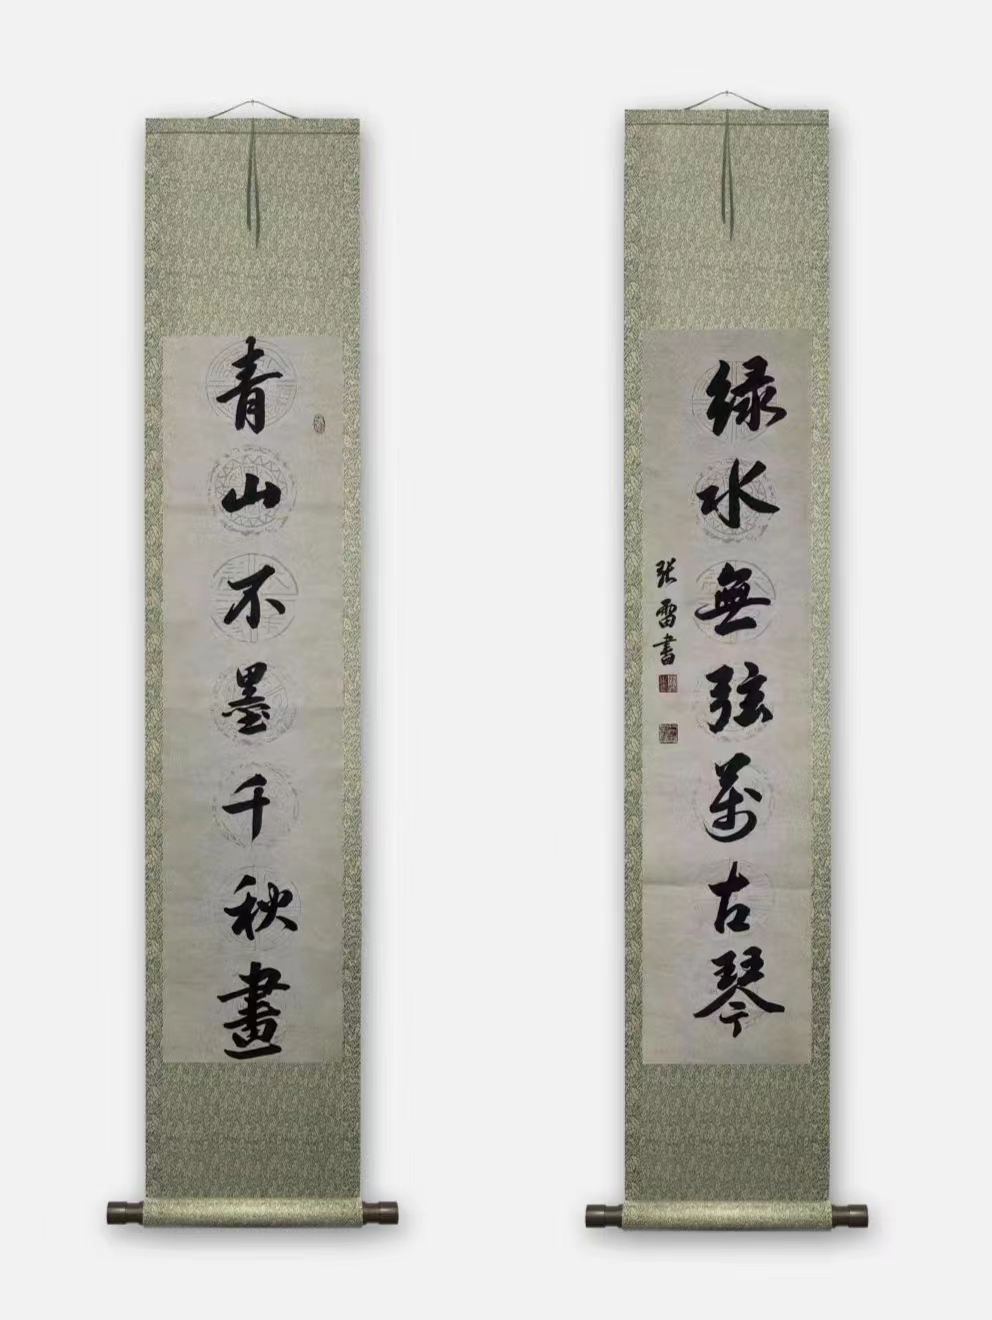 青山不墨千秋畫
綠水無弦萬古琴
张雷書